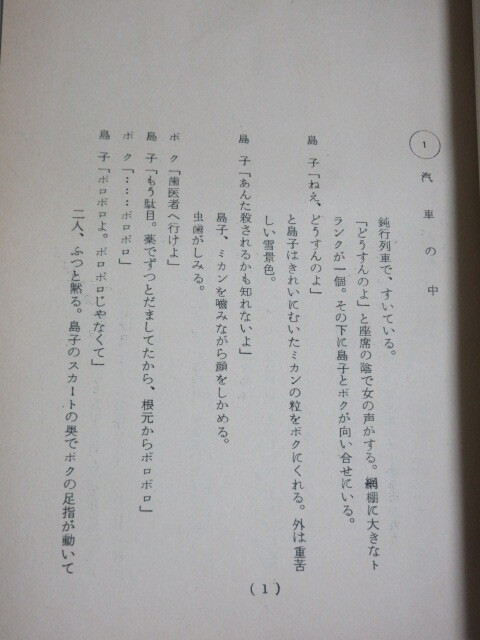 1 汽車の中
鈍行列車で、すいている。
「どうすんのよ」と座席の陰で女の声がする。網棚に大きなト
ランクが一個。その下に島子とボクが向い合せにいる。
島子「ねえ、どうすんのよ」
と島子はきれいにむいたミカンの粒をボクにくれる。外は重苦
しい雪景色。
島子「あんた殺されるかも知れないよ」
島子、ミカンを噛みながら顔をしかめる。
虫歯がしみる。
ボク「歯医者へ行けよ」
島子「もう駄目。薬でずっとだましてたから、根元からボロボロ」
ボク「……ボロボロ」
島子「ボロボロよ。ボロボロじゃなくて」
二人、ふっと黙る。島子のスカートの奥でボクの足指が動いて
(1)